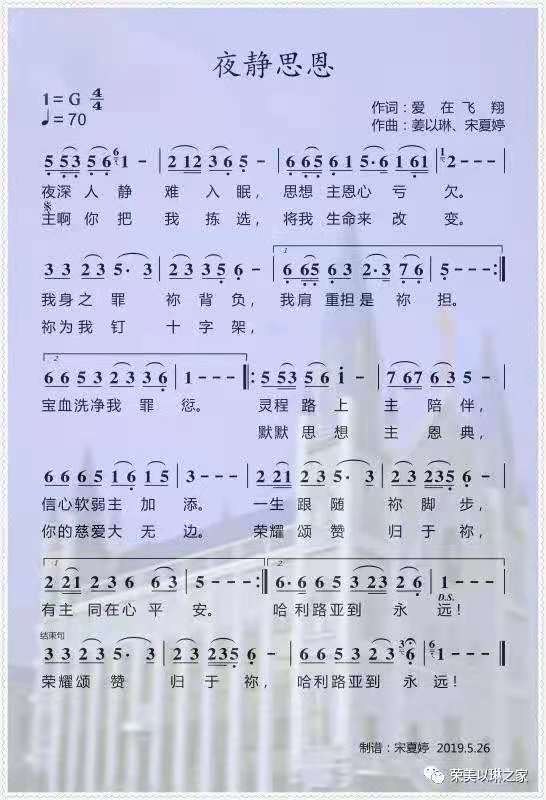 夜静思恩
1=G 4/4
♩=70
作词：爱 在 飞 翔
作曲：姜以琳、宋夏婷
5 5 3 5 6 1 - | 2 1 2 3 6 5 - | 6 6 5 6 1 5· 6 1 6 1 | 2 - - |
夜深 人 静 难 入 眠， 思想 主恩心 亏 欠。
主啊 你 把 我 拣 选， 将我 生命来 改 变。
3 3 2 3 5· 3 | 2 2 3 3 5 6 - | 6· 6 5 6 3 2· 3 7 6 | 5 - - - :|
我身 之 罪 祢 背 负， 我肩 重担是 祢 担。
祢为 我 钉 十 字 架，
6 6 5 3 2 3 3 6 | 1 - - - |: 5 5 3 5 6 i - | 7 6 7 6 3 5 - |
宝血洗净我 罪 愆。 灵程 路 上 主 陪 伴，
默默 思 想 主 恩 典，
6 6 6 5 1 6 1 5 | 3 - - - | 2 2 1 5 3· 3 | 2 2 2 3 5 6 - |
信心软弱主 加 添。 一生 跟 随 祢 脚 步，
你的慈爱大 无 边。 荣耀 颂 赞 归 于 祢，
2 2 1 2 3 6 6 3 | 5 - - - :| 6· 6 6 5 3 2 3 2 6 | 1 - - - |
有主 同在心 平 安。 哈 利路亚到 永 远！
D.S.
结束句
3 3 2 3 5· 3 | 2 2 2 3 5 6 - | 6 6 6 5 3 2 3 2 6 | 1 - - - |
荣耀颂 赞 归 于 祢， 哈利路亚到 永 远！
制谱：宋夏婷 2019.5.26
荣美以琳之家